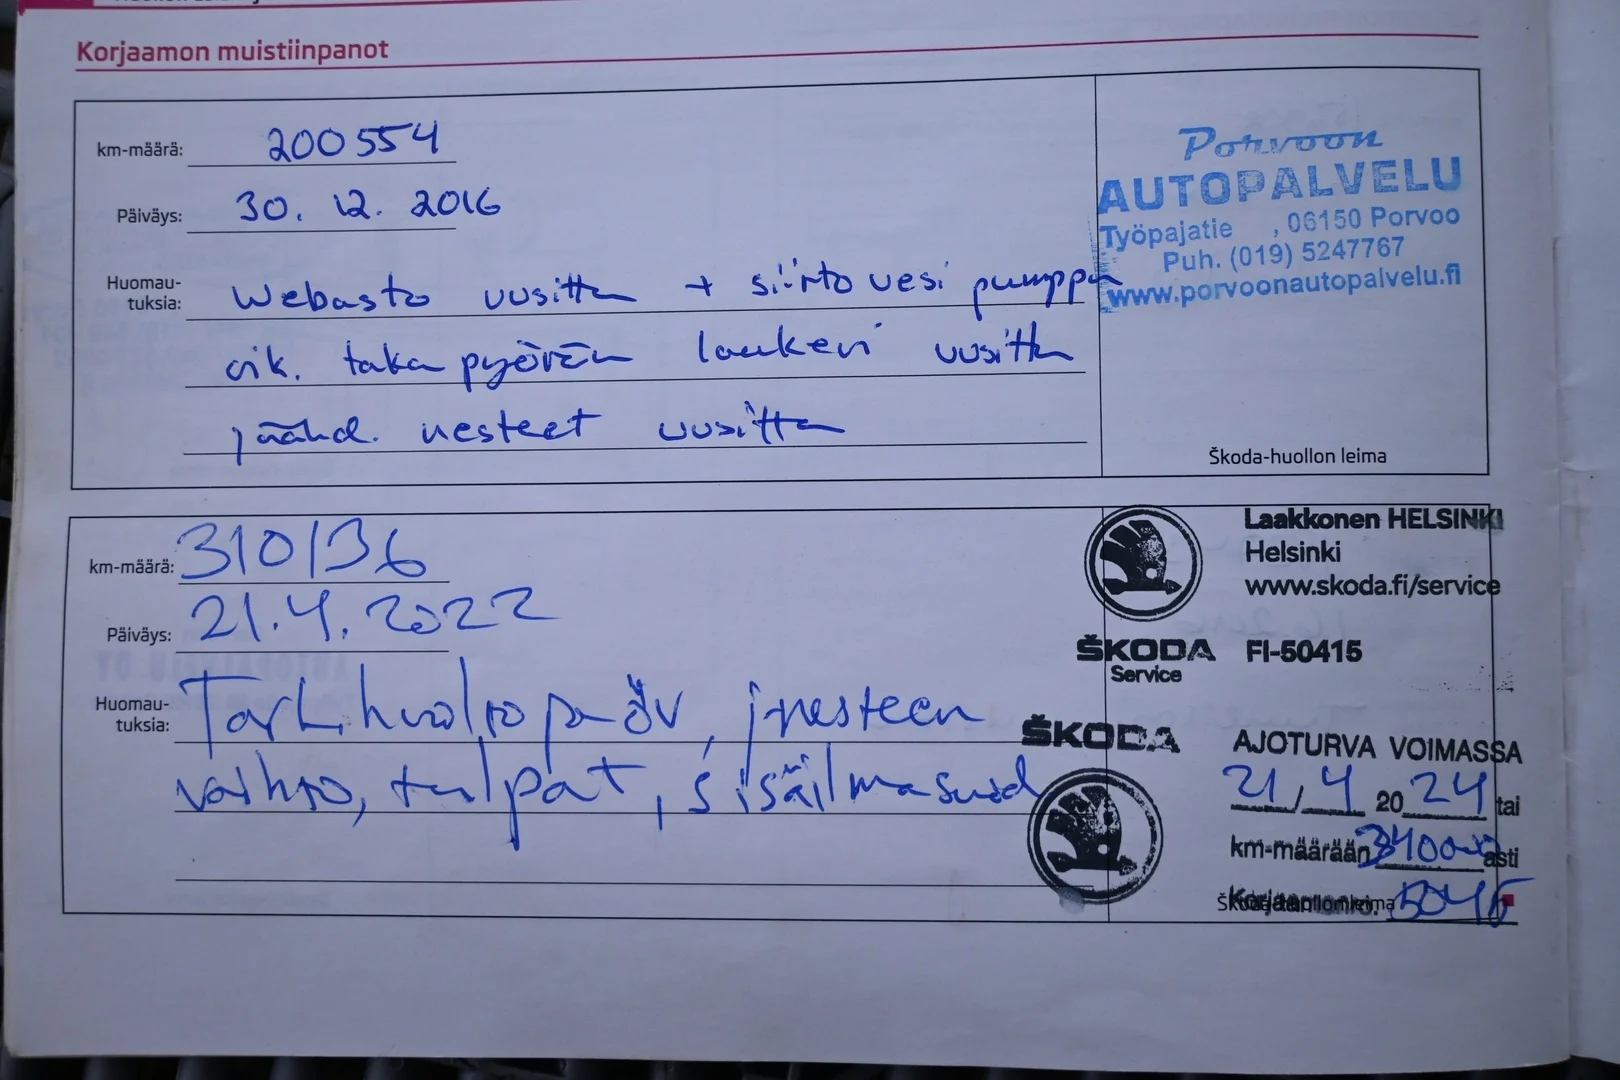 Korjaamon muistiinpanot
km-määrä: 200554
Päiväys: 30. 12. 2016
Huomau-
tuksia: Webasto uusittu + siirto vesi pumppu
oik. taka pyörän laakeri uusittu
jäähd. nesteet uusittu
Porvoon
AUTOPALVELU
Työpajatie , 06150 Porvoo
Puh. (019) 5247767
www.porvoonautopalvelu.fi
Škoda-huollon leima
km-määrä: 310136
Päiväys: 21.4.2022
Huomau-
tuksia: Tark.huolto pa öv, j-nesteen
vaihto, tulpat, sisäilmasuod
Laakkonen HELSINKI
Helsinki
www.skoda.fi/service
ŠKODA FI-50415
Service
ŠKODA
AJOTURVA VOIMASSA
21/4 2024 tai
km-määrään 340000 asti